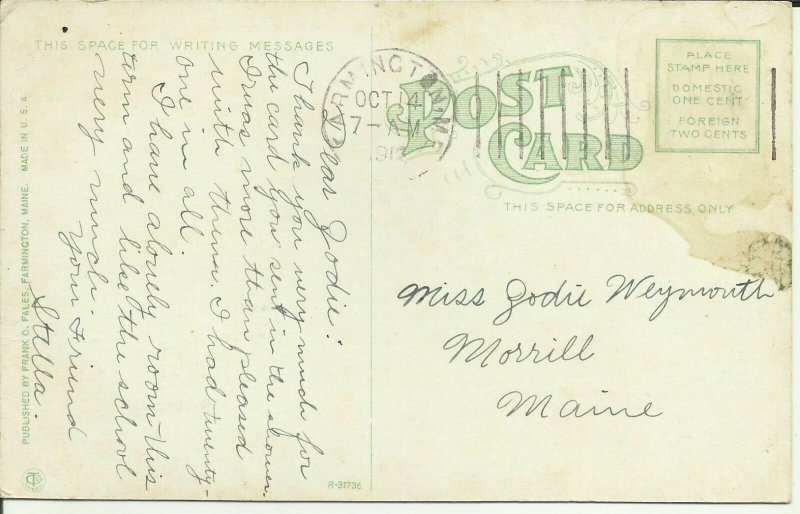 THIS SPACE FOR WRITING MESSAGES
Dear Zodie:
Thank you very much for
the card you sent in the shower.
I was more than pleased
with them. I had twenty-
one in all.
I have a lonely room this
term and like the school
very much.
Your Friend
Stella.
PUBLISHED BY FRANK O. FALES, FARMINGTON, MAINE. MADE IN U.S.A.
R-31736
RMINGTON, ME
OCT 14
7 - AM
POST
CARD
THIS SPACE FOR ADDRESS ONLY
PLACE
STAMP HERE
DOMESTIC
ONE CENT
FOREIGN
TWO CENTS
Miss Zodie Weymouth
Morrill
Maine